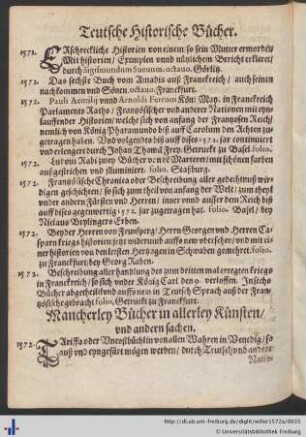 Teutsche Historische Bücher.
1571. ERschreckliche Historien von einem so sein Mutter ermordet/
Mit historien/ Exemplen vnnd nützlichem Bericht erkläret/
durch Sigismundum Sueuum. octauo. Görlitz.
1572. Das sechste Buch vom Amadis auß Franckreich/ auch seinen
nachkommen vnd Sönen. octauo. Franckfurt.
1572. Pauli Aemilij vnnd Arnoldi Ferroni Kön: May. in Franckreich
Parlaments Raths/ Frantzösischer vnd anderer Nationen mit eyn
lauffender Historien/ welche sich von anfang der Frantzosen Reich/
nemlich von König Pharamundo biß auff Carolum den Achten zu-
getragen haben. Vnd volgends biß auff dises 1572. jar continuirt
vnd erlengert durch Johan Thoma Frey. Getruckt zu Basel. folio.
1572. Ludoui Rabi zwey Bücher von den Marterer/ mit schönen farben
auß gestrichen vnd illuminiert. folio. Straßburg.
1572. Frantzösische Chronica oder Beschreibung aller gedechtnuß wir-
digen geschichten/ so sich zum theil von anfang der Welt/ zum theyl
vnder andern Fürsten vnd Herren/ inner vnnd ausser dem Reich biß
auff dises gegenwertig 1572. jar zugetragen hat. folio. Basel/ bey
Niclaus Bryling ers Erben.
1572. Beyder Herren von Frunsperg/ Herrn Georgen vnd Herren Ca-
sparn kriegs historien jetzt widerumb auffs new vbersehen/ vnd mit ei-
ner historien von den ersten Hertzogen in Schwaben gemehret. folio.
zu Franckfurt/ bey Georg Raben.
1572. Beschreibung aller handlung des zum dritten mal erregten kriegs
in Franckreich/ so sich vnder König Carl den 9. verloffen. In sechs
Bücher abgetheilt vnd auffs new in Teutsch Sprach auß der Fran-
tzösische gebracht folio, Getruckt zu Franckfurt.
Mancherley Bücher in allerley Künsten/
vnd andern sachen.
1572. TAriffa oder Vncostbüchlin von allen Wahren in Venedig/ so
auß vnd eyngefürt mögen werden/ durch Teutsch vnd andere
Natio-
http://dl.ub.uni-freiburg.de/diglit/willer1572a/0035
Universitätsbibliothek Freiburg